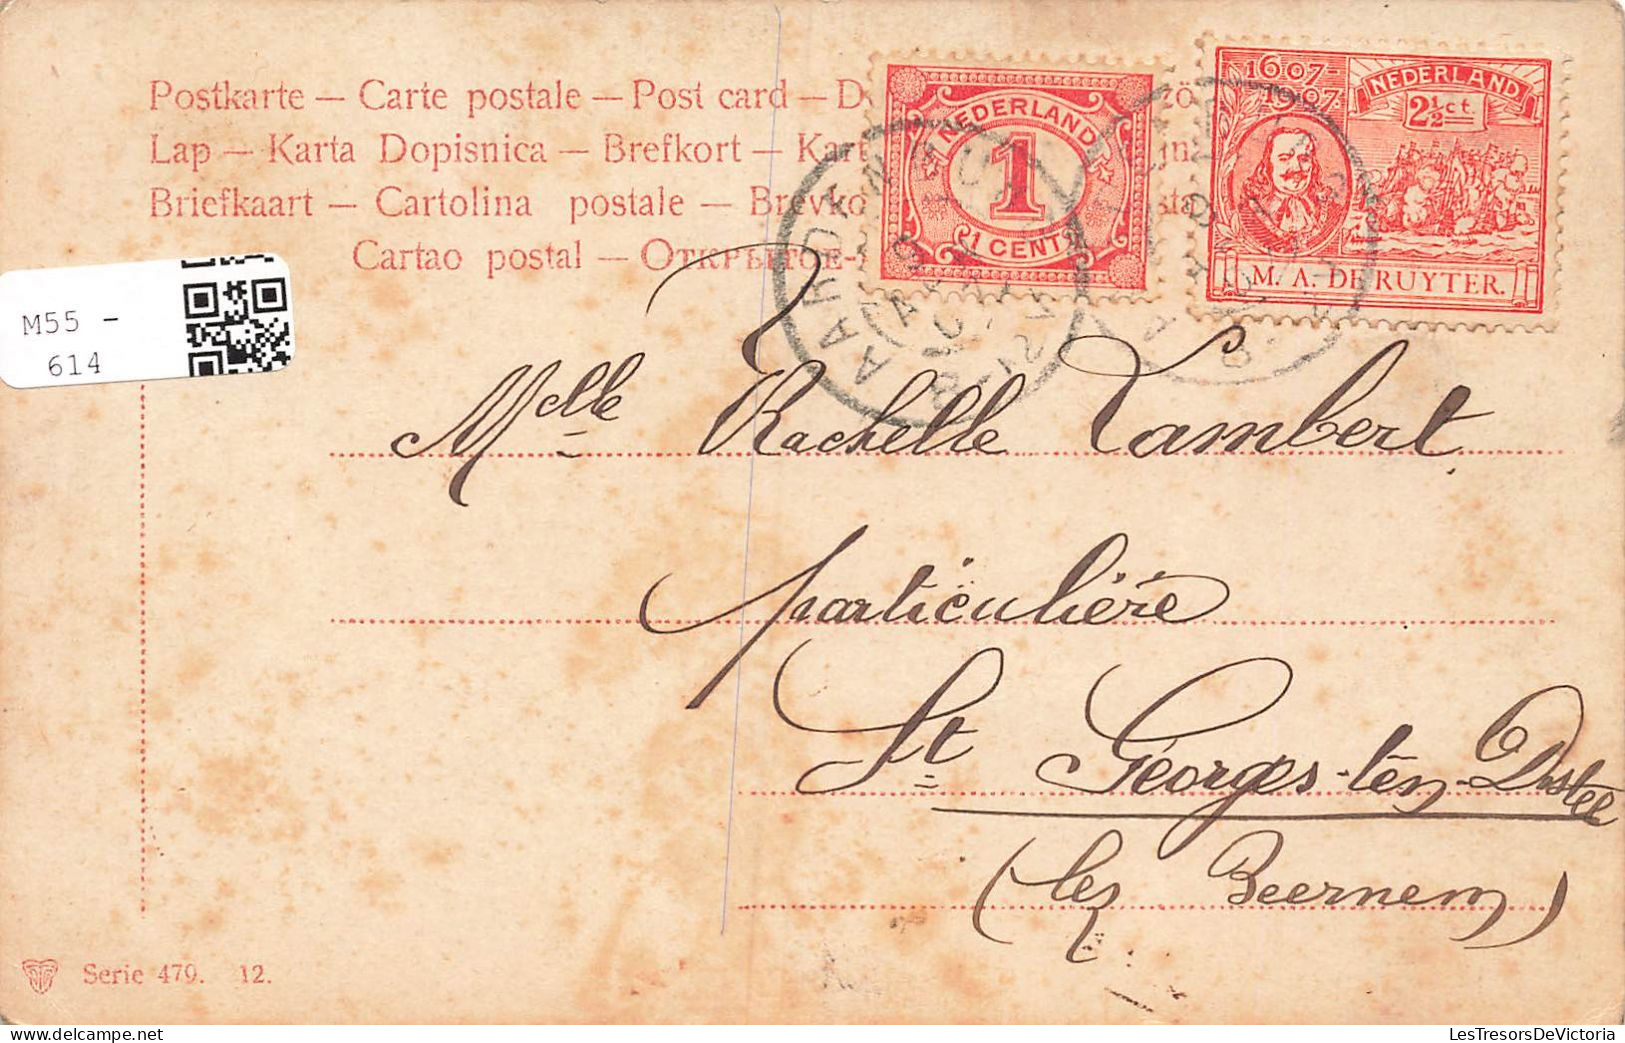 Postkarte — Carte postale — Post card — D
Lap — Karta Dopisnica — Brefkort — Kart
Briefkaart — Cartolina postale — Brevko
Cartao postal — Открытое-
NEDERLAND
1
1 CENT
1607-
1907.
NEDERLAND
2½ ct.
M. A. DE RUYTER.
AARDENBURG
M55 -
614
Melle Rachelle Lambert
particulière
St Georges-ten-Distel
(lez Beernem)
Serie 479. 12.
LesTresorsDeVictoria